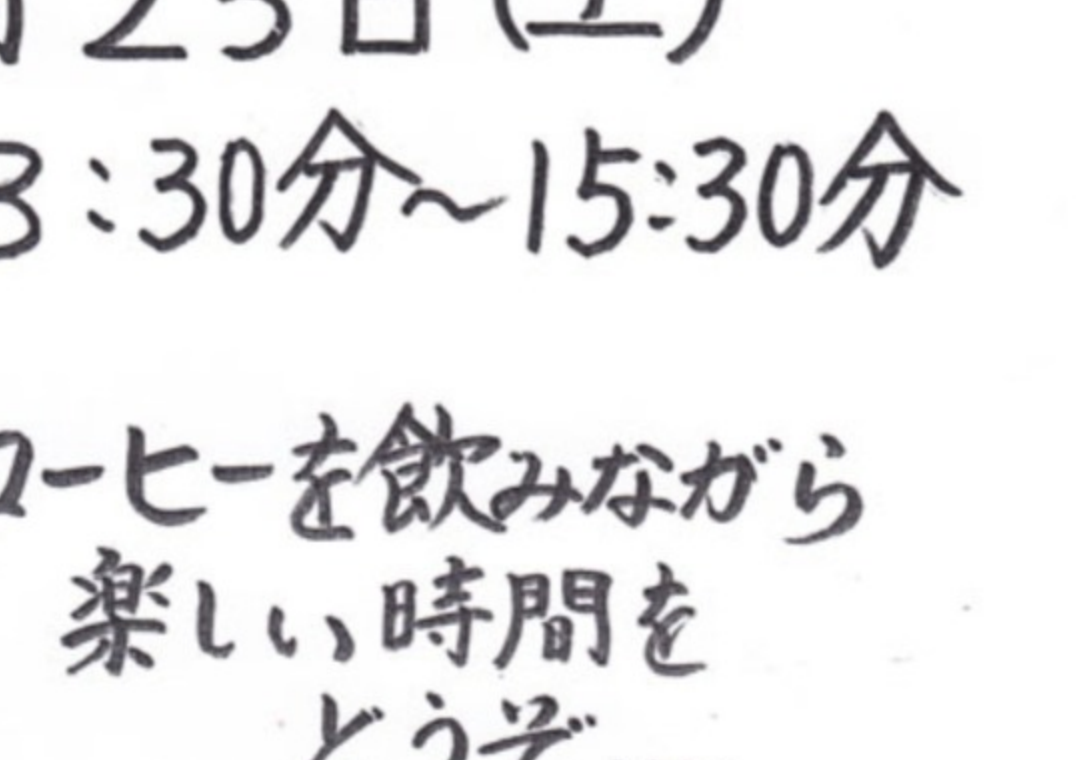 23日(土)
3:30分～15:30分
コーヒーを飲みながら
楽しい時間を
どうぞ